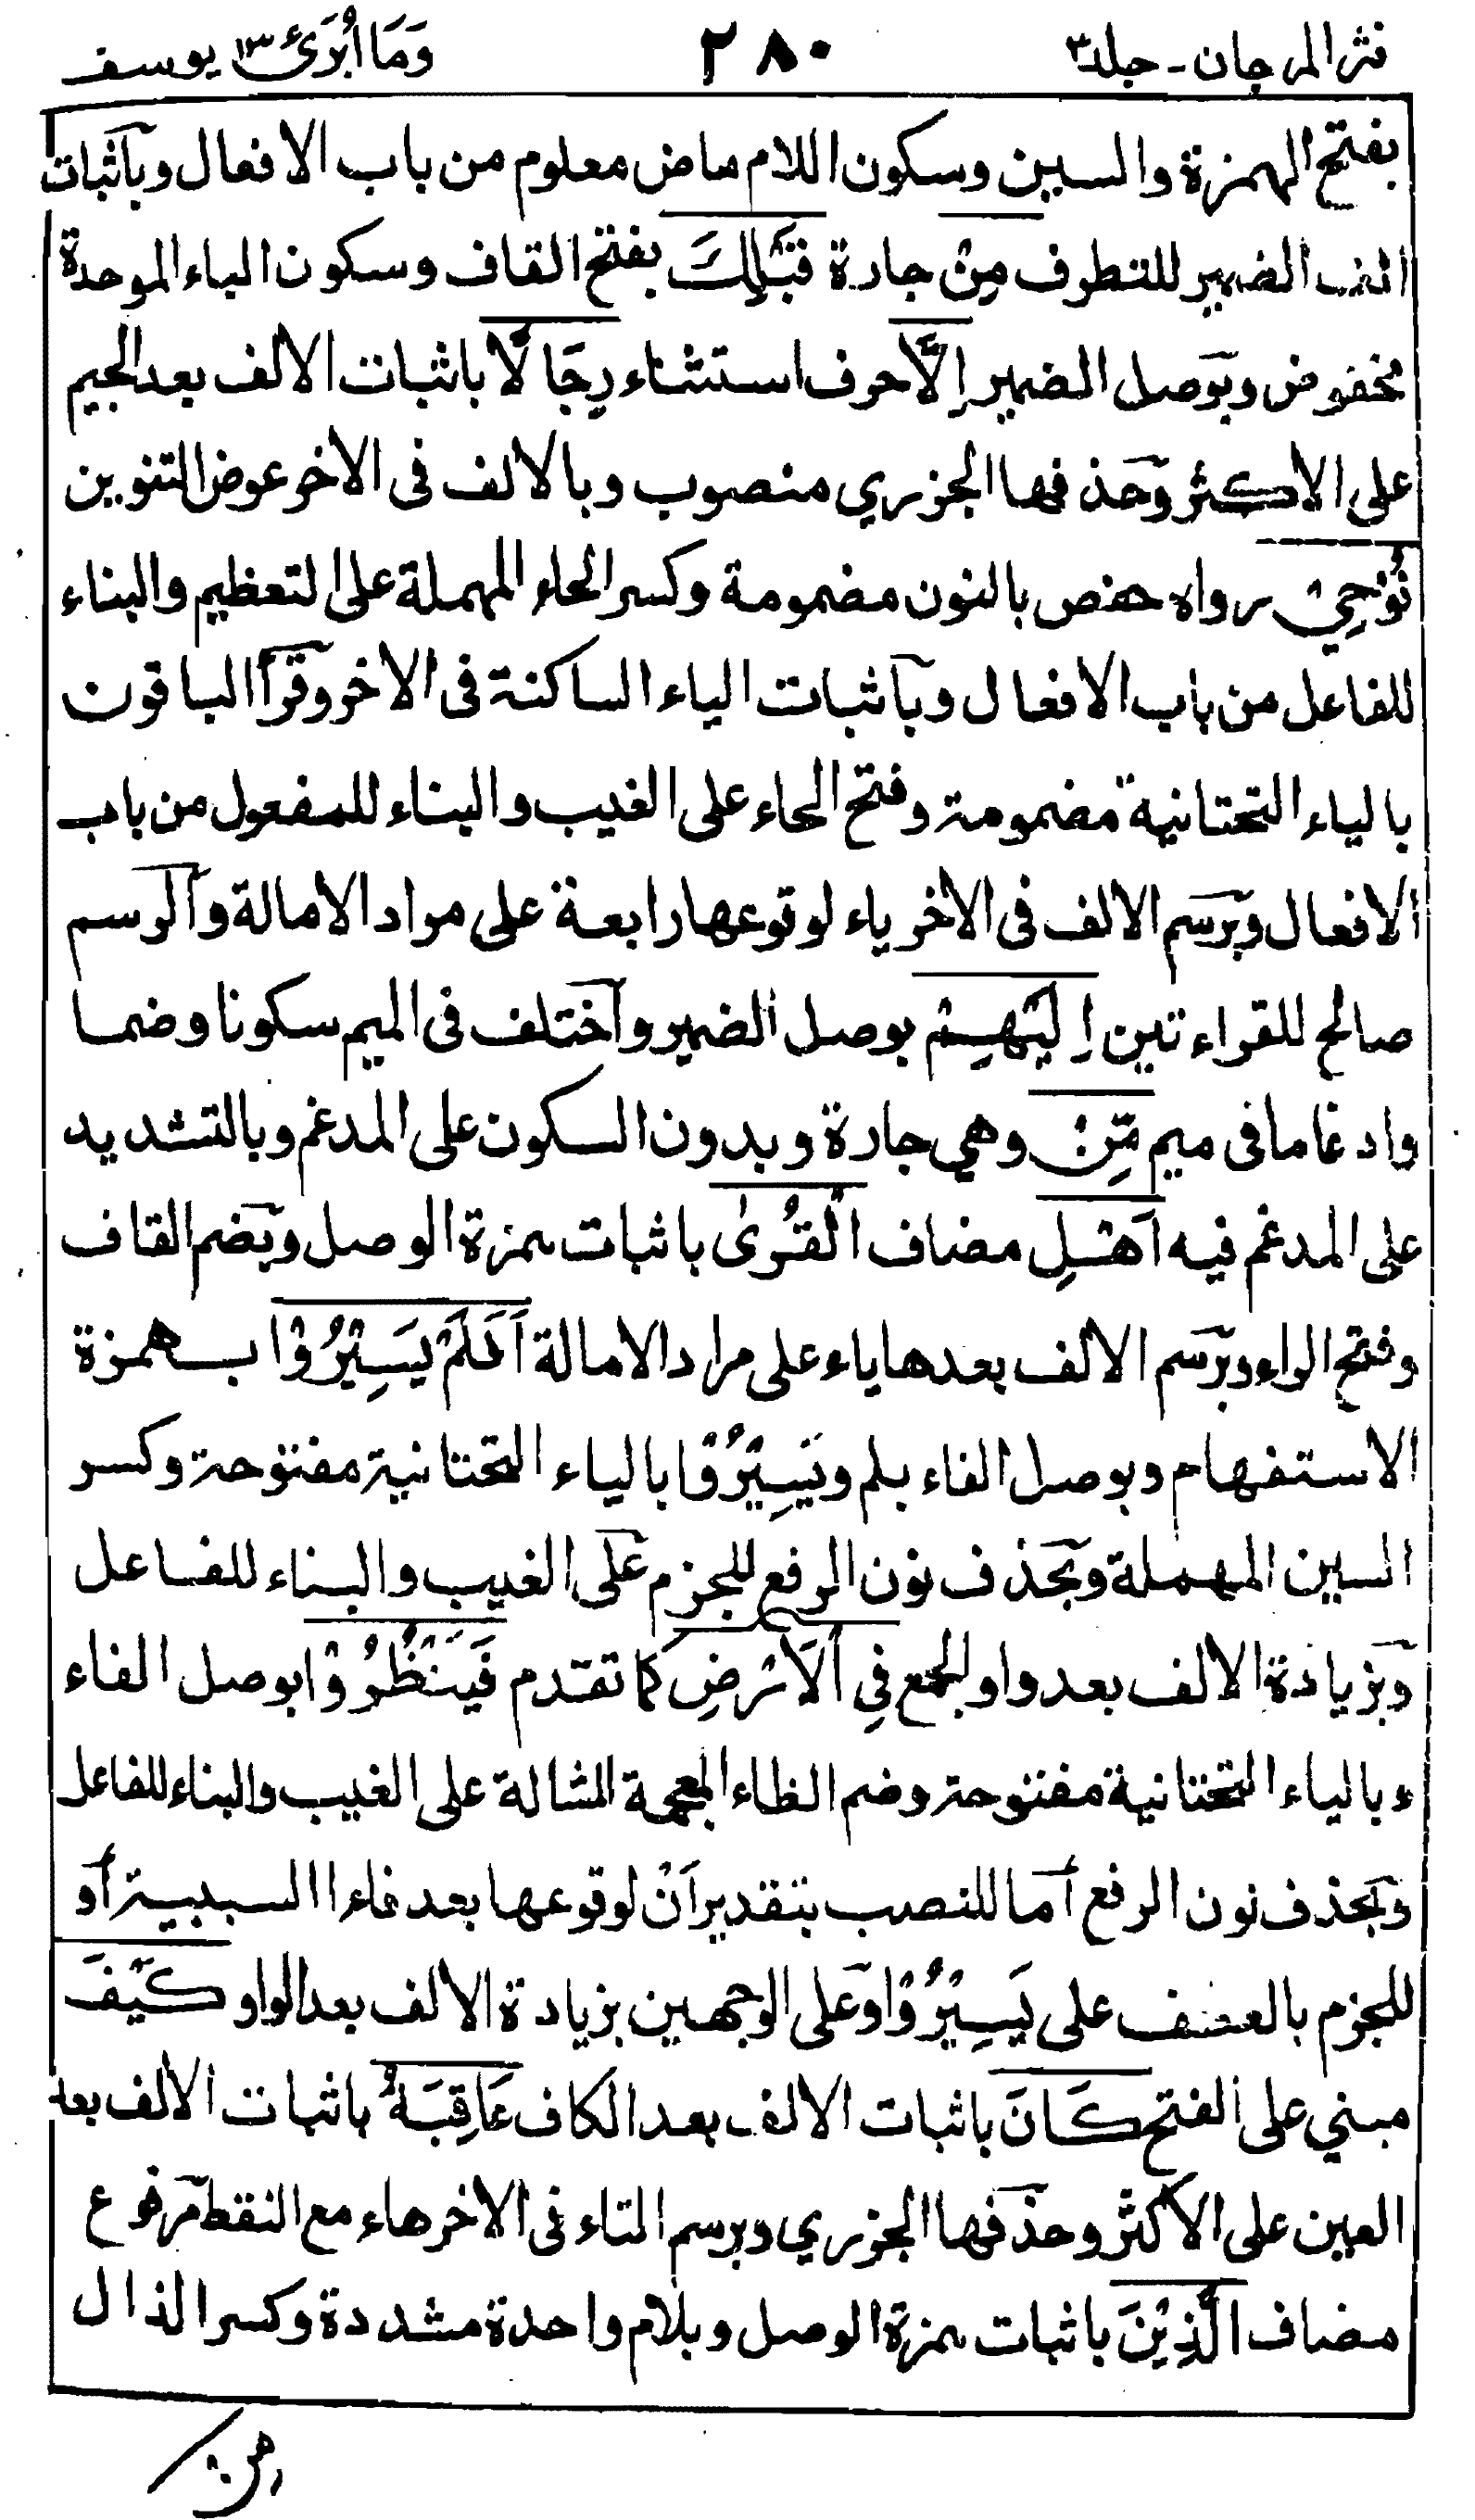 نثر المرجان - جلد ٣ ٢٨٠ وَمَا أُبَرِّئُ ١٣ يوسف
بفتح الهمزة والسين وسكون اللام ماض معلوم من باب الافعال وبآثبات
الف الضمير للتطرف مِنْ جارة قَبْلِكَ بفتح القاف وسكون الباء الموحدة
مخفوض وبوصل الضمير إِلَّا حرف استثناء رِجَالًا باثبات الالف بعد الجيم
على الاكثر وحذفها الجزري منصوب وبالالف فى الاخر عوض التنوين
نُوْحِيْ رواه حفص بالنون مضمومة وكسر الحاء المهملة على التعظيم والبناء
للفاعل من باب الافعال وبآثبات الياء الساكنة فى الاخر وقرأ الباقون
بالياء التحتانية مضمومة وفتح الحاء على الغيب والبناء للمفعول من باب
الافعال وبرسم الالف فى الاخر ياء لوقوعها رابعة على مراد الامالة والرسم
صالح للقراءتين اِلَيْهِمْ بوصل الضمير واختلف فى الميم سكونا وضما
وادغاما فى ميم مِّنْ وهي جارة وبدون السكون على المدغم وبالتشديد
على المدغم فيه اَهْلِ مضاف الْقُرٰى باثبات همزة الوصل وبضم القاف
وفتح الراء وبرسم الالف بعدها ياء على مراد الامالة اَفَلَمْ يَسِيْرُوْا بهمزة
الاستفهام وبوصل الفاء بلم ويَسِيْرُوْا بالياء التحتانية مفتوحة وكسر
السين المهملة وبحذف نون الرفع للجزم على الغيب والبناء للفاعل
وبزيادة الالف بعد واو الجمع فِي الْاَرْضِ كما تقدم فَيَنْظُرُوْا بوصل الفاء
وبالياء التحتانية مفتوحة وضم الظاء المعجمة المشالة على الغيب والبناء للفاعل
وبحذف نون الرفع أما للنصب بتقدير اَنْ لوقوعها بعد فاء السببية أو
للجزم بالعطف على يَسِيْرُوْا وعلى الوجهين بزيادة الالف بعد الواو كَيْفَ
مبني على الفتح كَانَ باثبات الالف بعد الكاف عَاقِبَةُ باثبات الالف بعد
العين على الاكثر وحذفها الجزري وبرسم التاء فى الاخر هاء مع النقط مرفوع
مضاف الَّذِيْنَ باثبات همزة الوصل وبلام واحدة مشددة وكسر الذال
من